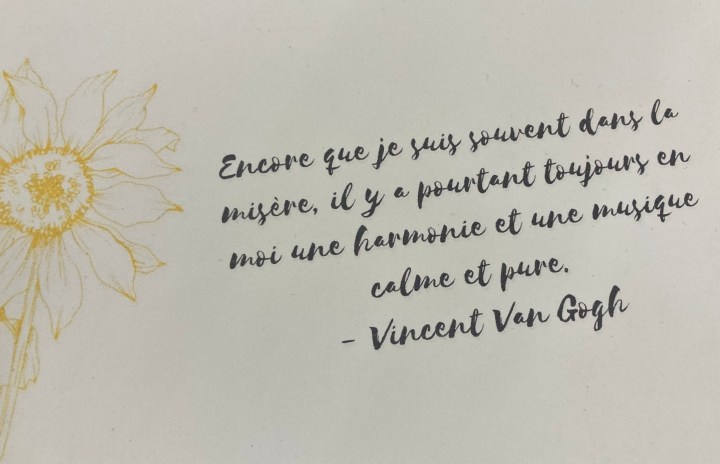 Encore que je suis souvent dans la
misère, il y a pourtant toujours en
moi une harmonie et une musique
calme et pure.
- Vincent Van Gogh